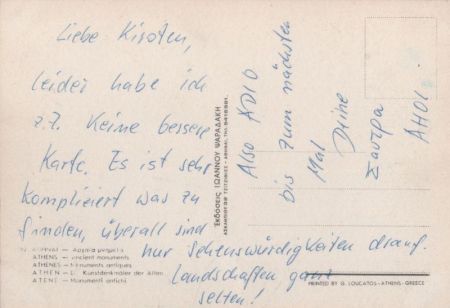 Liebe Kirsten,
leider habe ich
z.Z. keine bessere
Karte. Es ist sehr
kompliciert was zu
finden, überall sind
nur Sehenswürdigkeiten drauf.
Landschaften ganz
selten!
Also ADIO
bis zum nächsten
Mal Deine
Σαντρα
AHOI.
Εκδόσεις ΙΩΑΝΝΟΥ ΨΑΡΑΔΑΚΗ
ATHENS — ancient monuments
ATHENES — Monuments antiques
ATHEN — Kunstdenkmäler der Alten
ATENE — Monumenti antichi
PRINTED BY G. LOUCATOS - ATHENS - GREECE